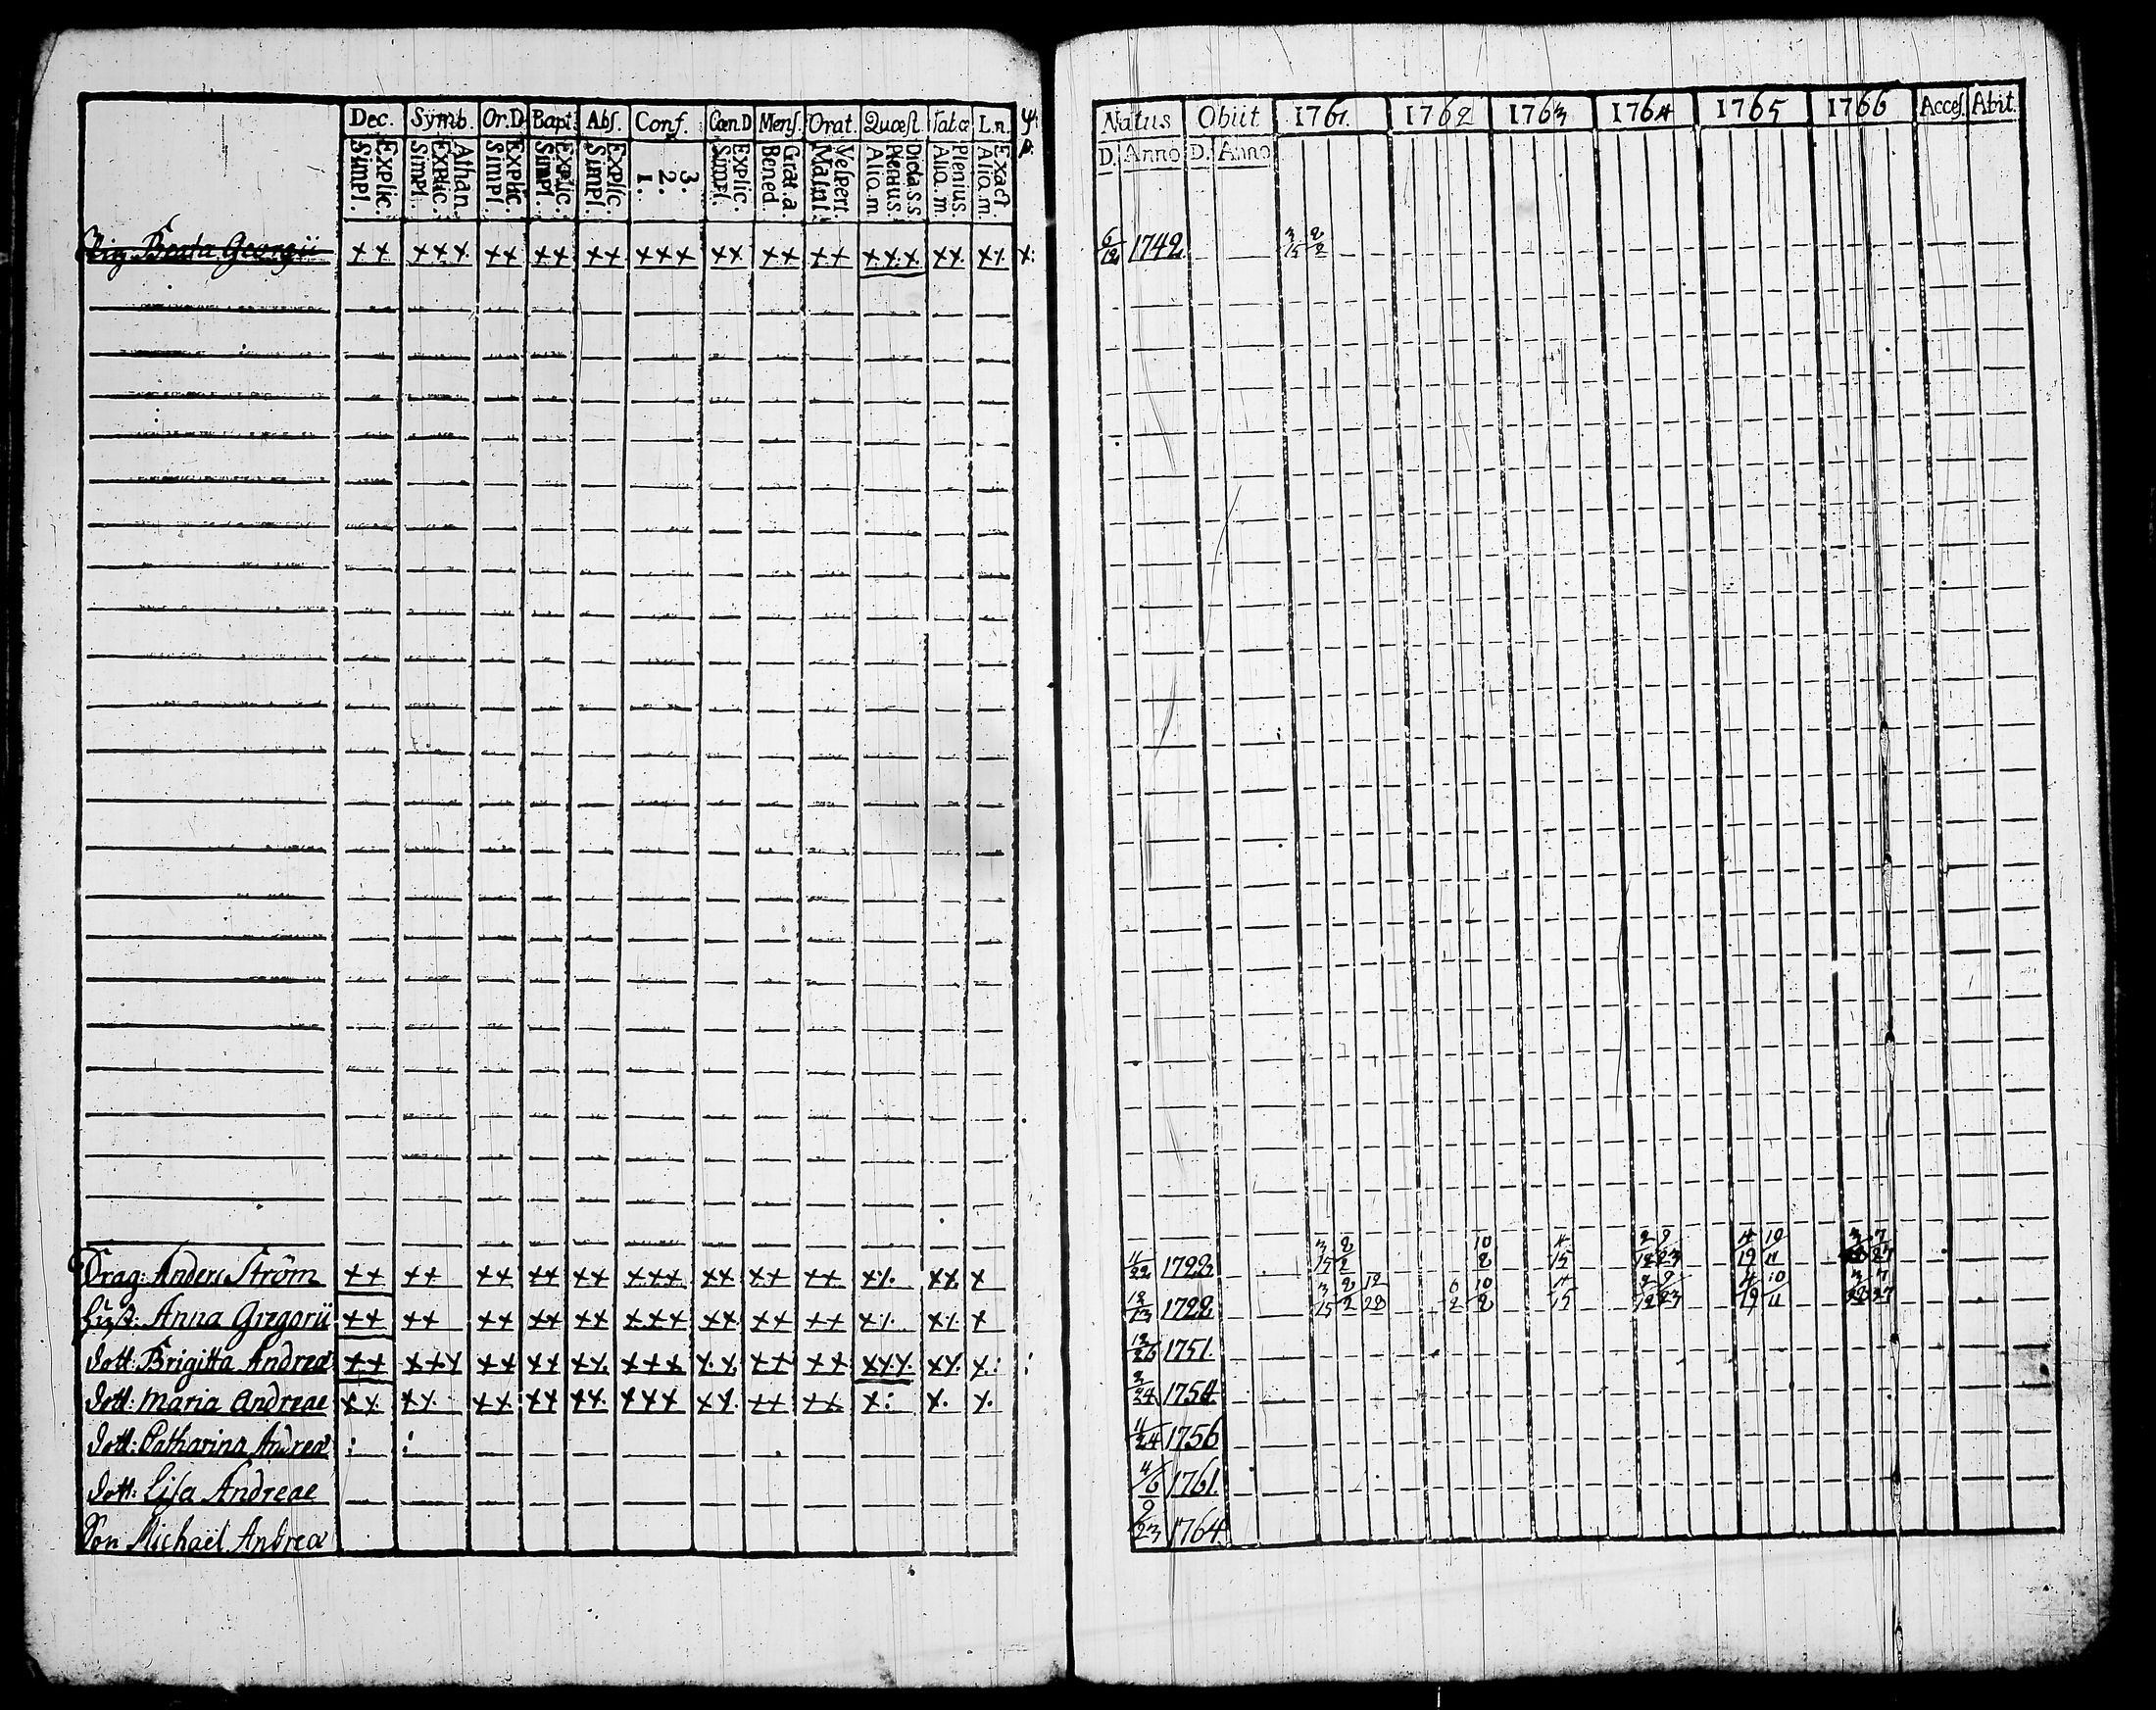 Dec. Symb. Or.D Bapt. Abs. Conf. Cœn.D Mens. Orat. Quæst. Tabœ L.n.
Explic. Simpl. Athan. Explic. Simpl. Explic. Simpl. Explic. Simpl. Explic. Simpl. 3. 2. 1. Explic. Simpl. Grat. a. Bened. Vespert. Matut. Dicta S.S. Plenius. Alio. m Plenius. Alio. m Exact. Alio. m.
Natus Obiit 1761. 1762 1763 1764 1765 1766 Acces. Abit.
D. Anno D. Anno
Pig. Beata Georgii ×× ××× ×× ×× ×× ××× ×× ×× ×× ××× ×× ×× × 6/12 1742 3/15 2/2
Drag: Anders Ström ×× ×× ×× ×× ×× ××× ×× ×× ×× ×⁒ ×× × 11/22 1722 3/15 2/2 10/2 4/15 2/12 9/23 4/19 10/11 3/22 7/27
Hust: Anna Gregorii ×× ×× ×× ×× ×× ××× ×× ×× ×× ×⁒ ×⁒ × 12/13 1722 3/15 2/2 12/28 6/2 10/2 4/15 2/12 9/23 4/19 10/11 3/22 7/27
dott: Brigitta Andreæ ×× ××× ×× ×× ×× ××× ×× ×× ×× ××× ×× ×: : 12/26 1751
dott: Maria Andreae ×× ×× ×× ×× ×× ××× ×× ×× ×× ×: ×. ×. 3/24 1754
dott: Catharina Andreæ : : 11/24 1756
dott: Lisa Andreae 4/6 1761
Son Michaël Andreæ 9/23 1764